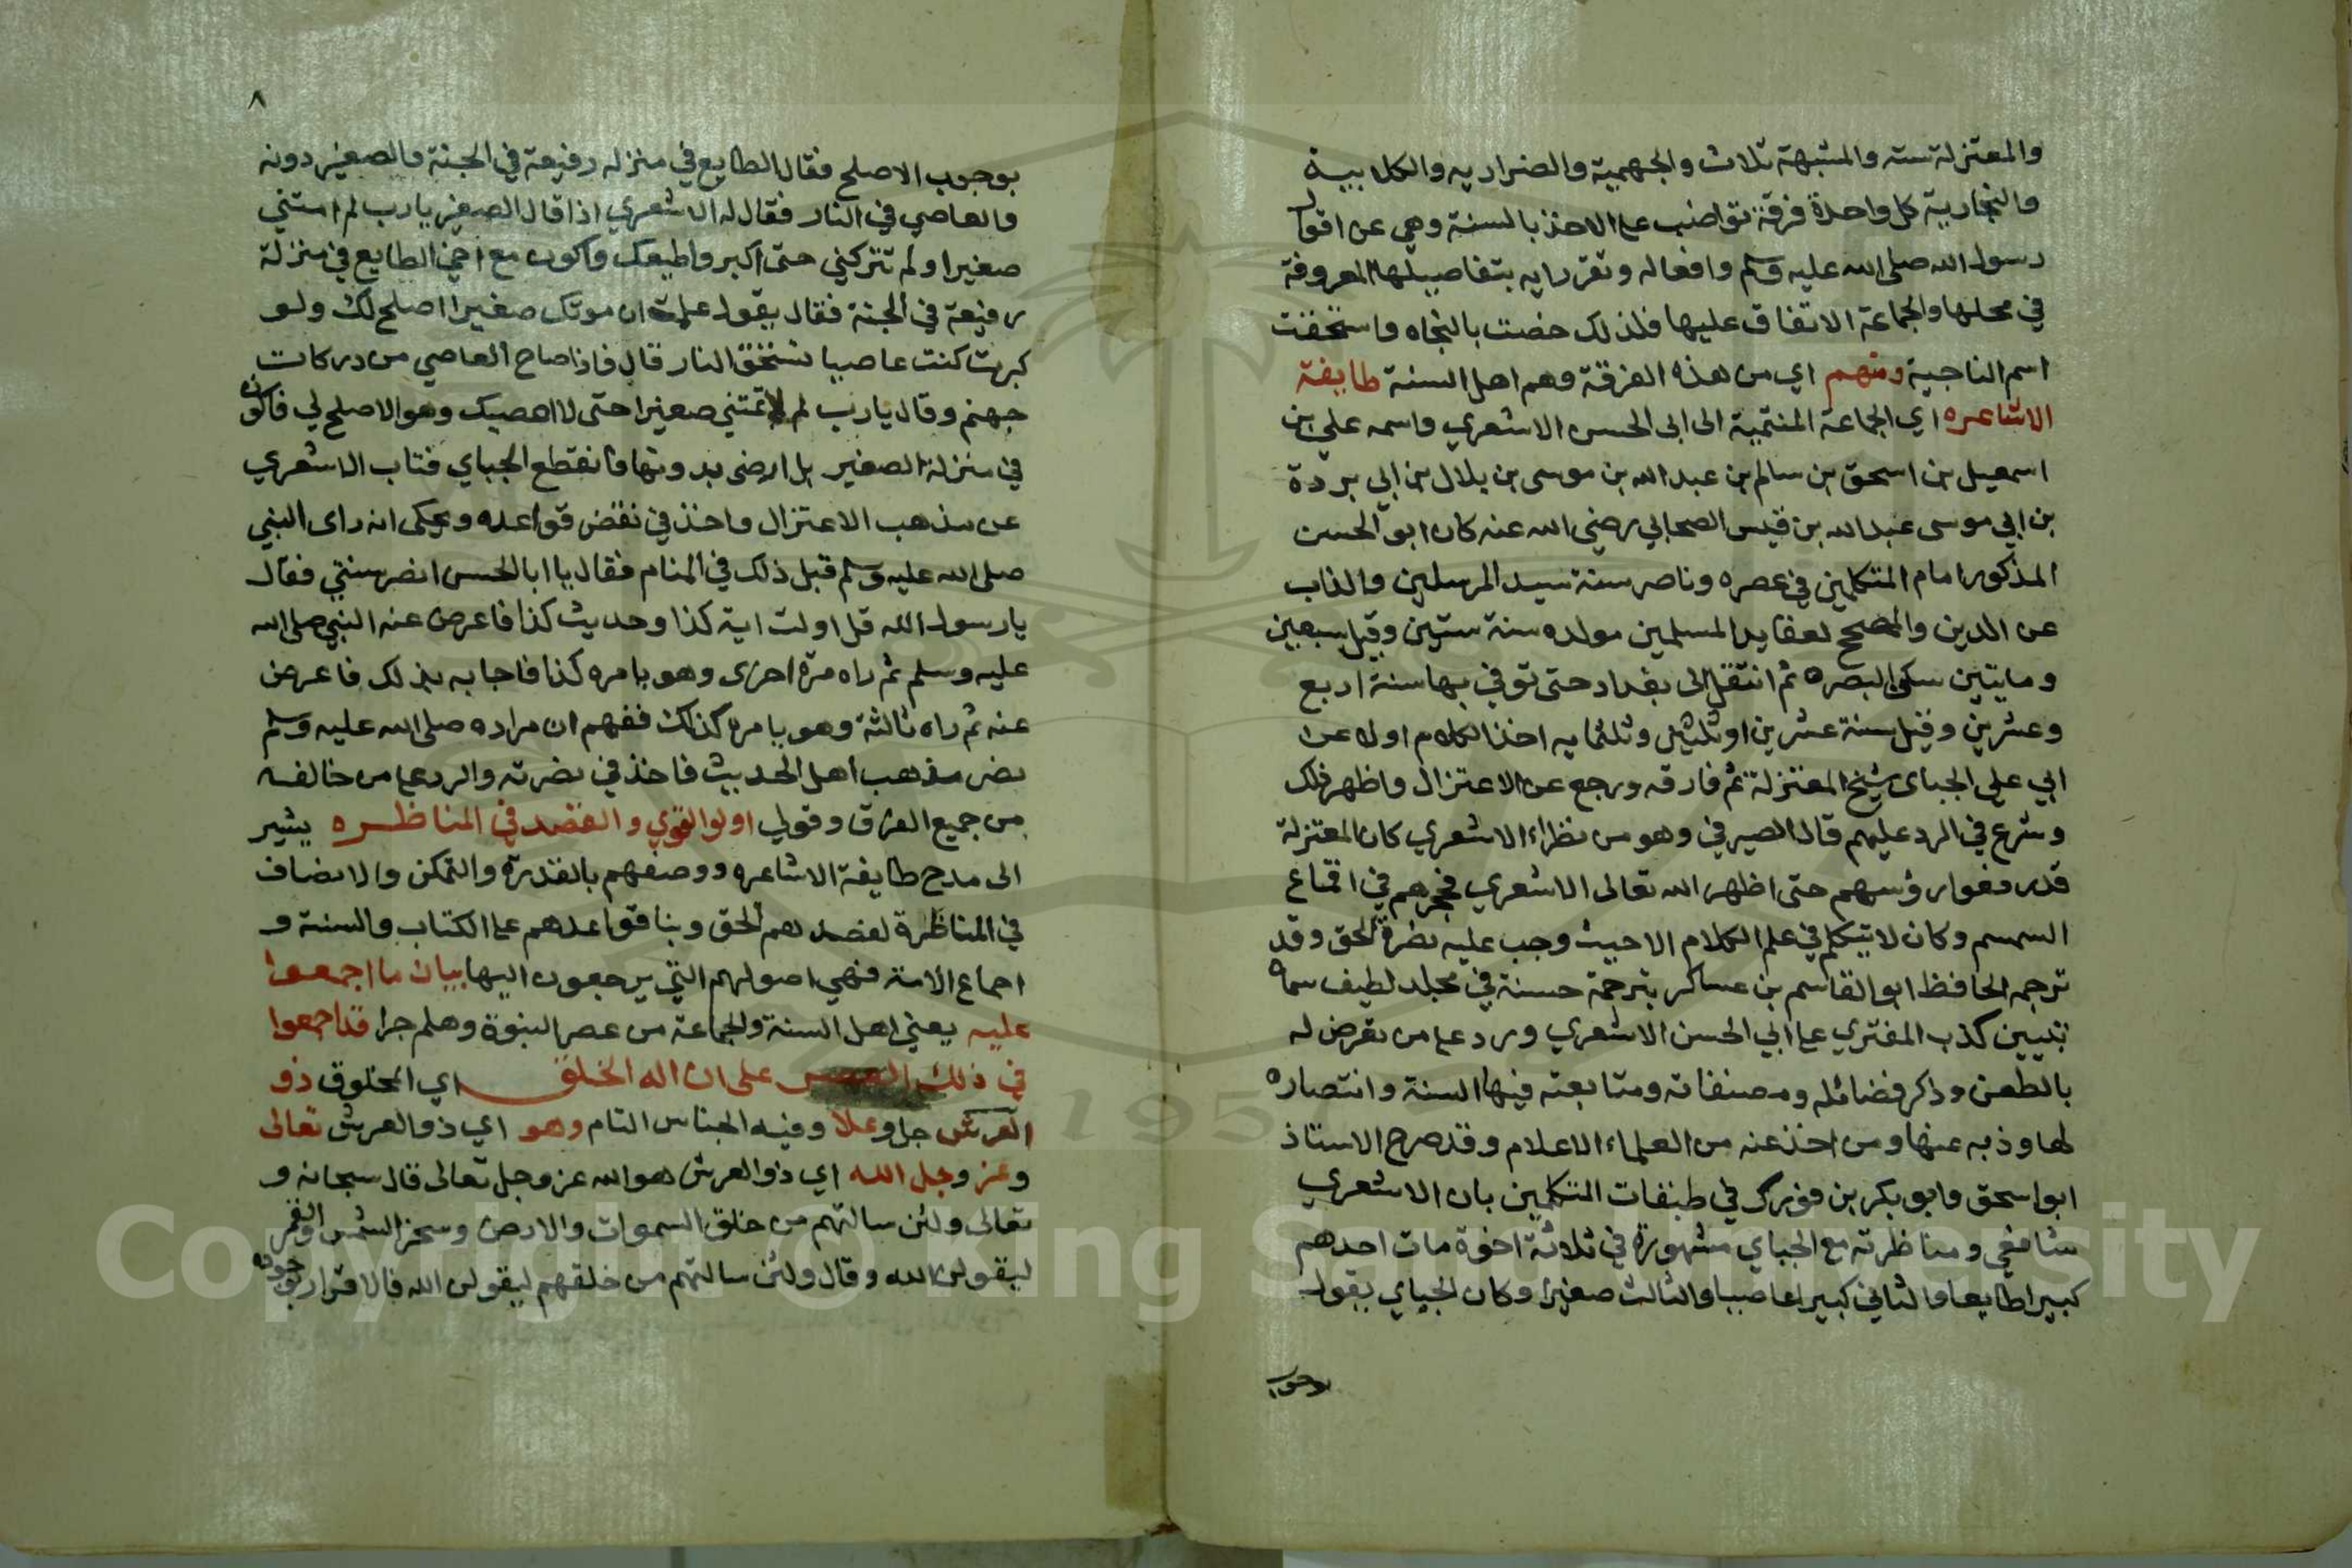 والمعتزلة ستة والمشبهة ثلاث والجهمية والضرارية والكلابية
والنجارية كل واحدة فرقة تواضب على الاخذ بالسنة وهي عن اقوال
رسول الله صلى الله عليه وسلم وافعاله وتقريراته بتفاصيلها المعروفة
في محلها والجماعة الاتفاق عليها فلذلك خصت بالنجاه واستحقت
اسم الناجية ومنهم اي من هذه الفرقة وهم اهل السنة طايفة
الاشاعره اي الجماعة المنتمية الى ابى الحسن الاشعري واسمه علي بن
اسمعيل بن اسحق بن سالم بن عبد الله بن موسى بن بلال بن ابي بردة
بن ابي موسى عبد الله بن قيس الصحابي رضي الله عنه كان ابو الحسن
المذكور امام المتكلمين في عصره وناصر سنة سيد المرسلين والذاب
عن الدين والمصحح لعقايد المسلمين مولده سنة ستين وقيل سبعين
ومايتين سكن البصره ثم انتقل الى بغداد حتى توفي بها سنة اربع
وعشرين وقيل سنة عشرين او ثلثين وثلثمايه اخذ الكلام اولا عن
ابي علي الجباى شيخ المعتزلة ثم فارقه ورجع عن الاعتزال واظهر ذلك
وشرع في الرد عليهم قال الصيرفي وهو من نظراء الاشعري كان المعتزلة
قد رفعوا رؤسهم حتى اظهر الله تعالى الاشعري فحجرهم في اقماع
السمسم وكان لا يتكلم في علم الكلام الا حيث وجب عليه نصرة الحق وقد
ترجمه الحافظ ابو القاسم بن عساكر بترجمة حسنة في مجلد لطيف سماه
تبيين كذب المفتري على ابي الحسن الاشعري ورد على من تعرض له
بالطعن وذكر فضائله ومصنفاته ومتابعته فيها السنة وانتصاره
لها وذبه عنها ومن اخذ عنه من العلماء الاعلام وقد صرح الاستاذ
ابو اسحق وابو بكر بن فورك في طبقات المتكلمين بان الاشعري
شافعي ومناظرته مع الجباي مشهورة في ثلاثة اخوة مات احدهم
كبيرا طايعا والثاني كبيرا عاصيا والثالث صغيرا وكان الجباي يقول
بوجوب
٨
بوجوب الاصلح فقال الطايع في منزله رفيعة في الجنة والصغير دونه
والعاصي في النار فقال له الاشعري اذا قال الصغير يارب لم امتني
صغيرا ولم تتركني حتى اكبر واطيعك واكون مع اخي الطايع في منزلة
رفيعة في الجنة فقال يقول علمت ان موتك صغيرا اصلح لك ولو
كبرت كنت عاصيا تستحق النار قال فاذا صاح العاصي من دركات
جهنم وقال يارب لم لا تمتني صغيرا حتى لا اعصيك وهو الاصلح لي فاكون
في منزلة الصغير بل ارضى بدونها فانقطع الجباي فتاب الاشعري
عن مذهب الاعتزال واخذ في نقض قواعده ويحكى انه راى النبي
صلى الله عليه وسلم قبل ذلك في المنام فقال يا ابا الحسن انصر سنتي فقال
يا رسول الله قل اولت اية كذا وحديث كذا فاعرض عنه النبي صلى الله
عليه وسلم ثم راه مرة اخرى وهو يامره كذا فاجابه بذلك فاعرض
عنه ثم راه ثالثة وهو يامره كذلك ففهم ان مراده صلى الله عليه وسلم
نصر مذهب اهل الحديث فاخذ في نصرته والرد على من خالفه
من جميع الفرق وقولي اولو القوي والقصد في المناظره يشير
الى مدح طايفة الاشاعره ووصفهم بالقدرة والتمكن والانصاف
في المناظرة لقصدهم الحق وبنا قواعدهم على الكتاب والسنة و
اجماع الامة فهي اصولهم التي يرجعون اليها بيان ما اجمعوا
عليه يعني اهل السنة والجماعة من عصر النبوة وهلم جرا قد اجمعوا
في ذلك على ان اله الخلق اي المخلوق ذو
العرش جل وعلا وفيه الجناس التام وهو اي ذو العرش تعالى
وعز وجل الله اي ذو العرش هو الله عز وجل تعالى قال سبحانه و
تعالى ولئن سالتهم من خلق السموات والارض وسخر الشمس والقمر
ليقولن الله وقال ولئن سالتهم من خلقهم ليقولن الله فالاقرار بوجوده